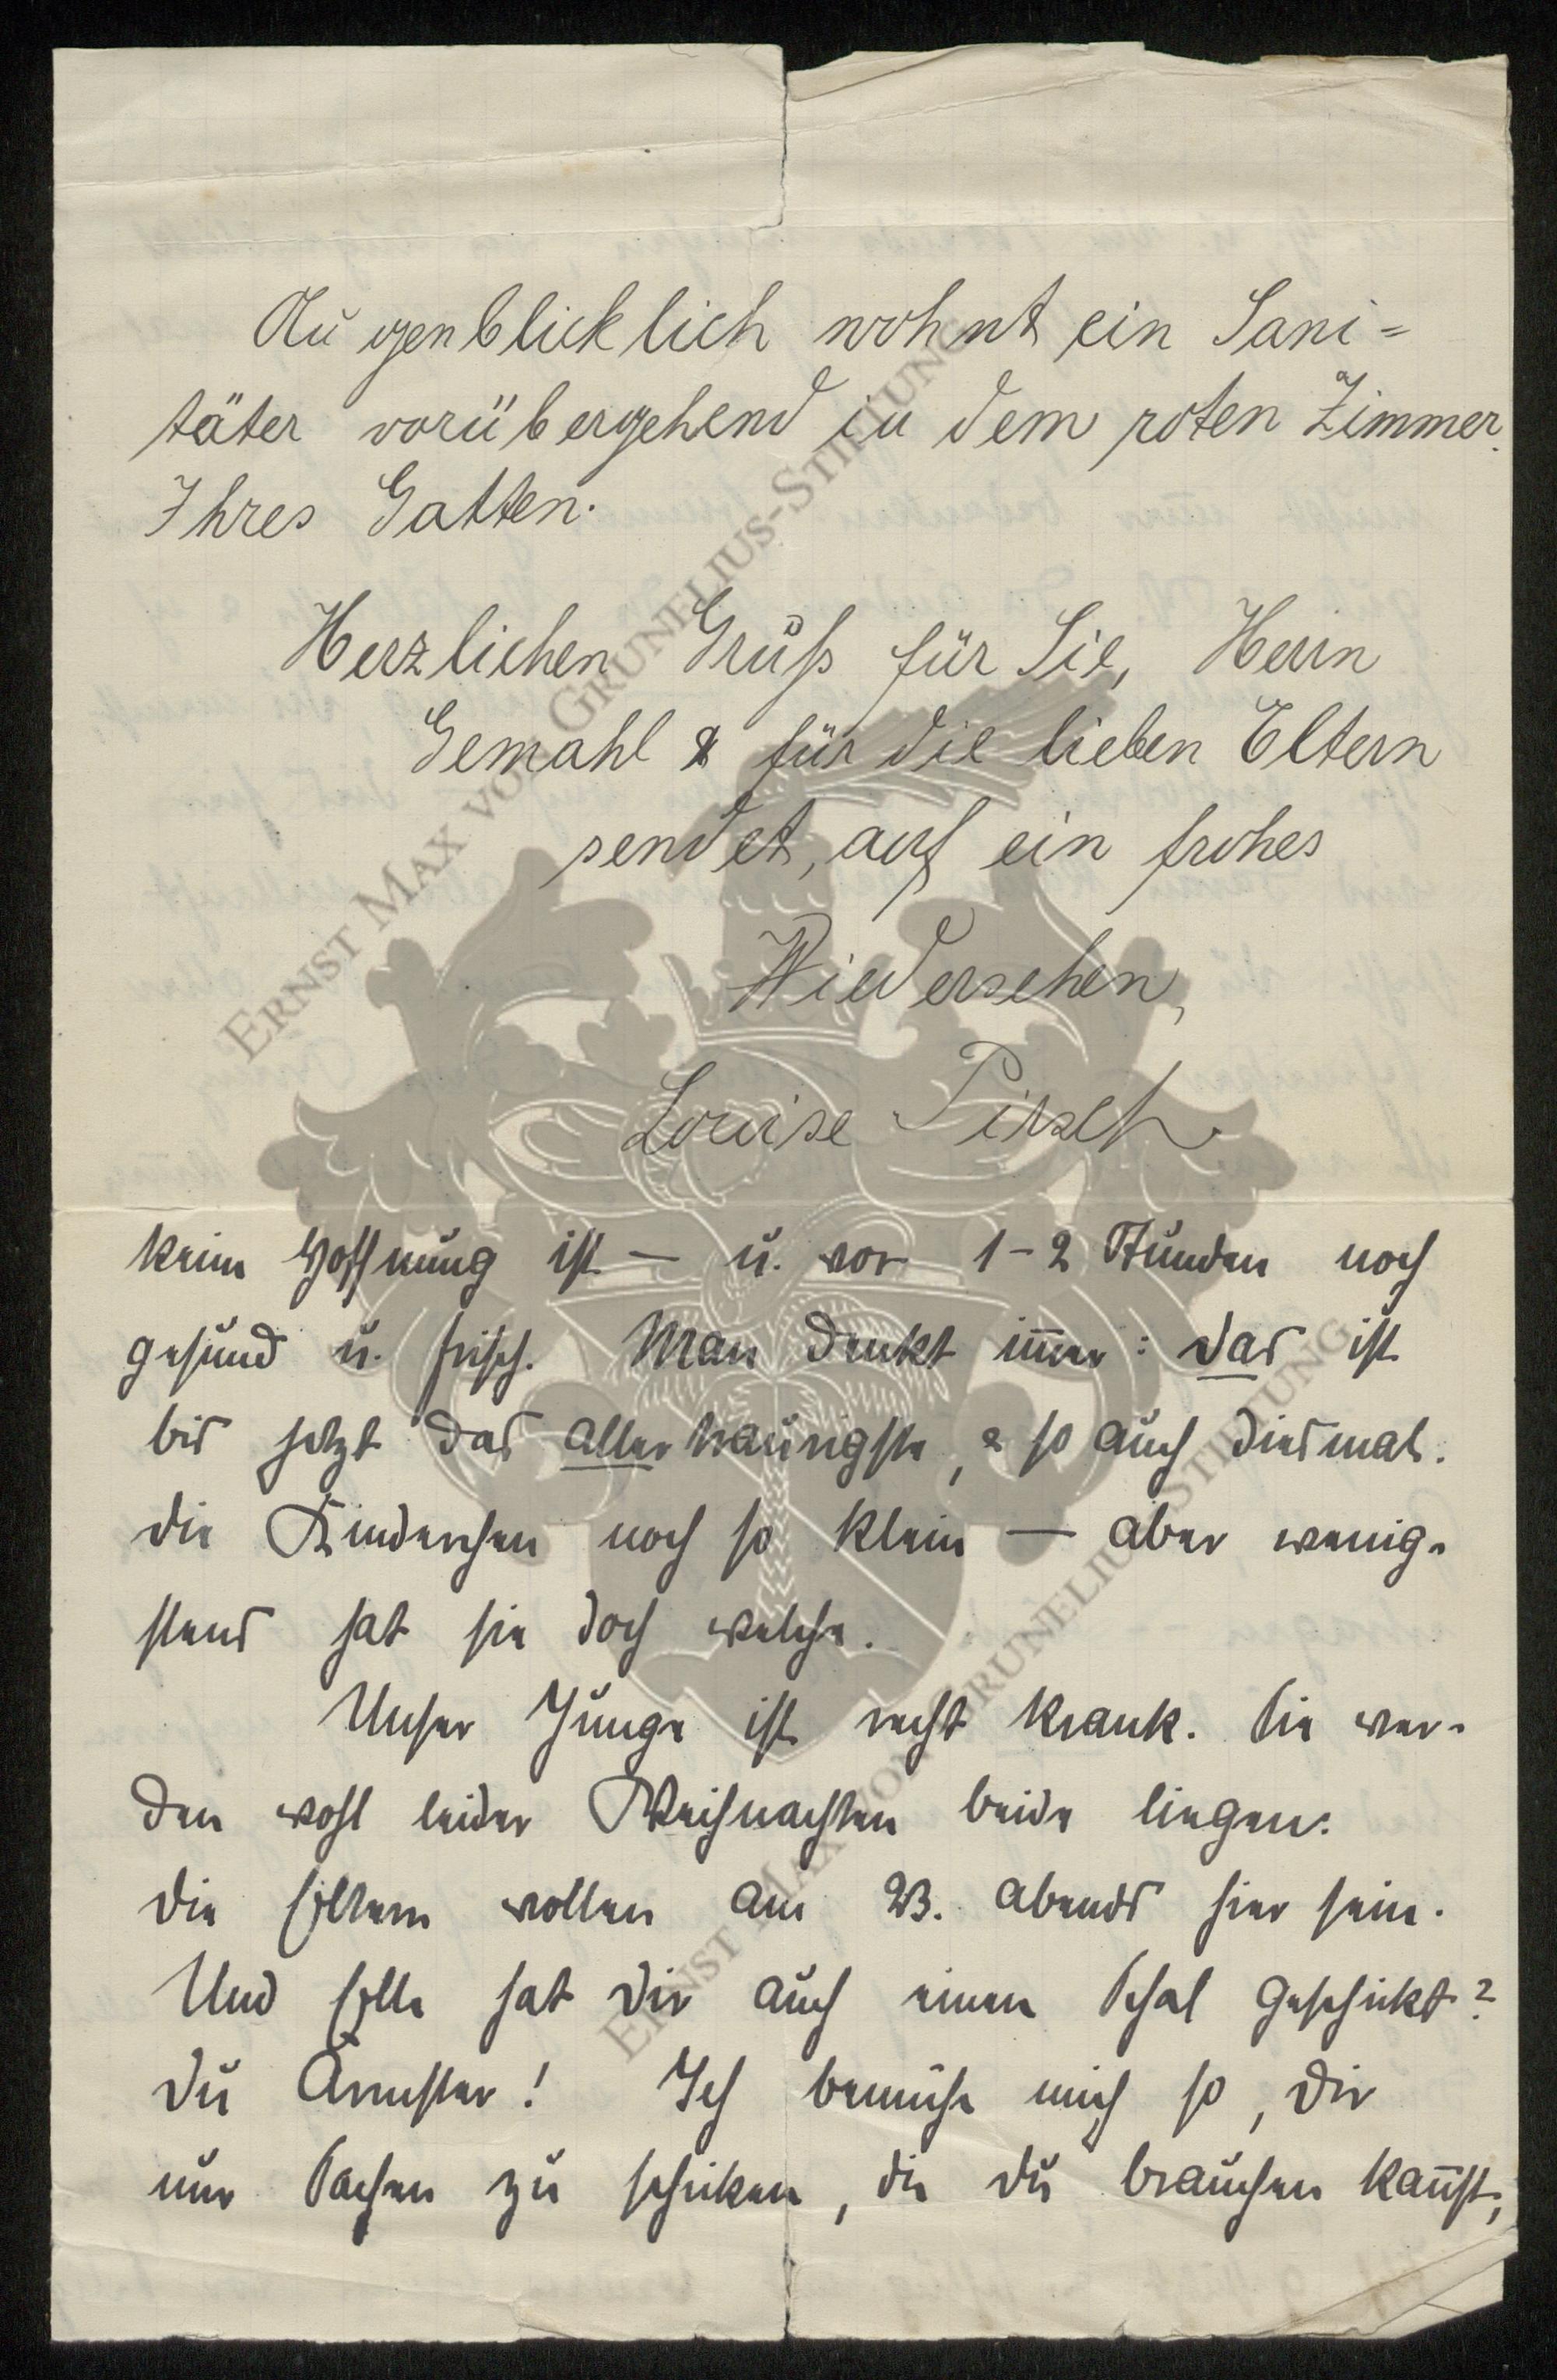 Augenblicklich wohnt ein Sani=
täter vorübergehend in dem roten Zimmer
Ihres Gatten.
Herzlichen Gruß für Sie, Herrn
Gemahl & für die lieben Eltern
sendet, auf ein frohes
Wiedersehen,
Louise
keine Hoffnung ist — u. vor 1-2 Stunden noch
gesund u. frisch. Man denkt im̅er: das ist
bis jetzt das allertraurigste, & so auch diesmal.
die Kinderchen noch so klein — aber wenig-
stens hat sie doch welche.
Unser Junge ist recht krank. Sie wer-
den wohl leider Weihnachten beide liegen.
die Eltern wollen am 23. abends hier sein.
Und Elle hat dir auch einen Schal geschickt?
du Ärmster! Ich bemühe mich so, dir
nur Sachen zu schicken, die du brauchen kan̅st,
ERNST MAX VON GRUNELIUS-STIFTUNG
ERNST MAX VON GRUNELIUS-STIFTUNG